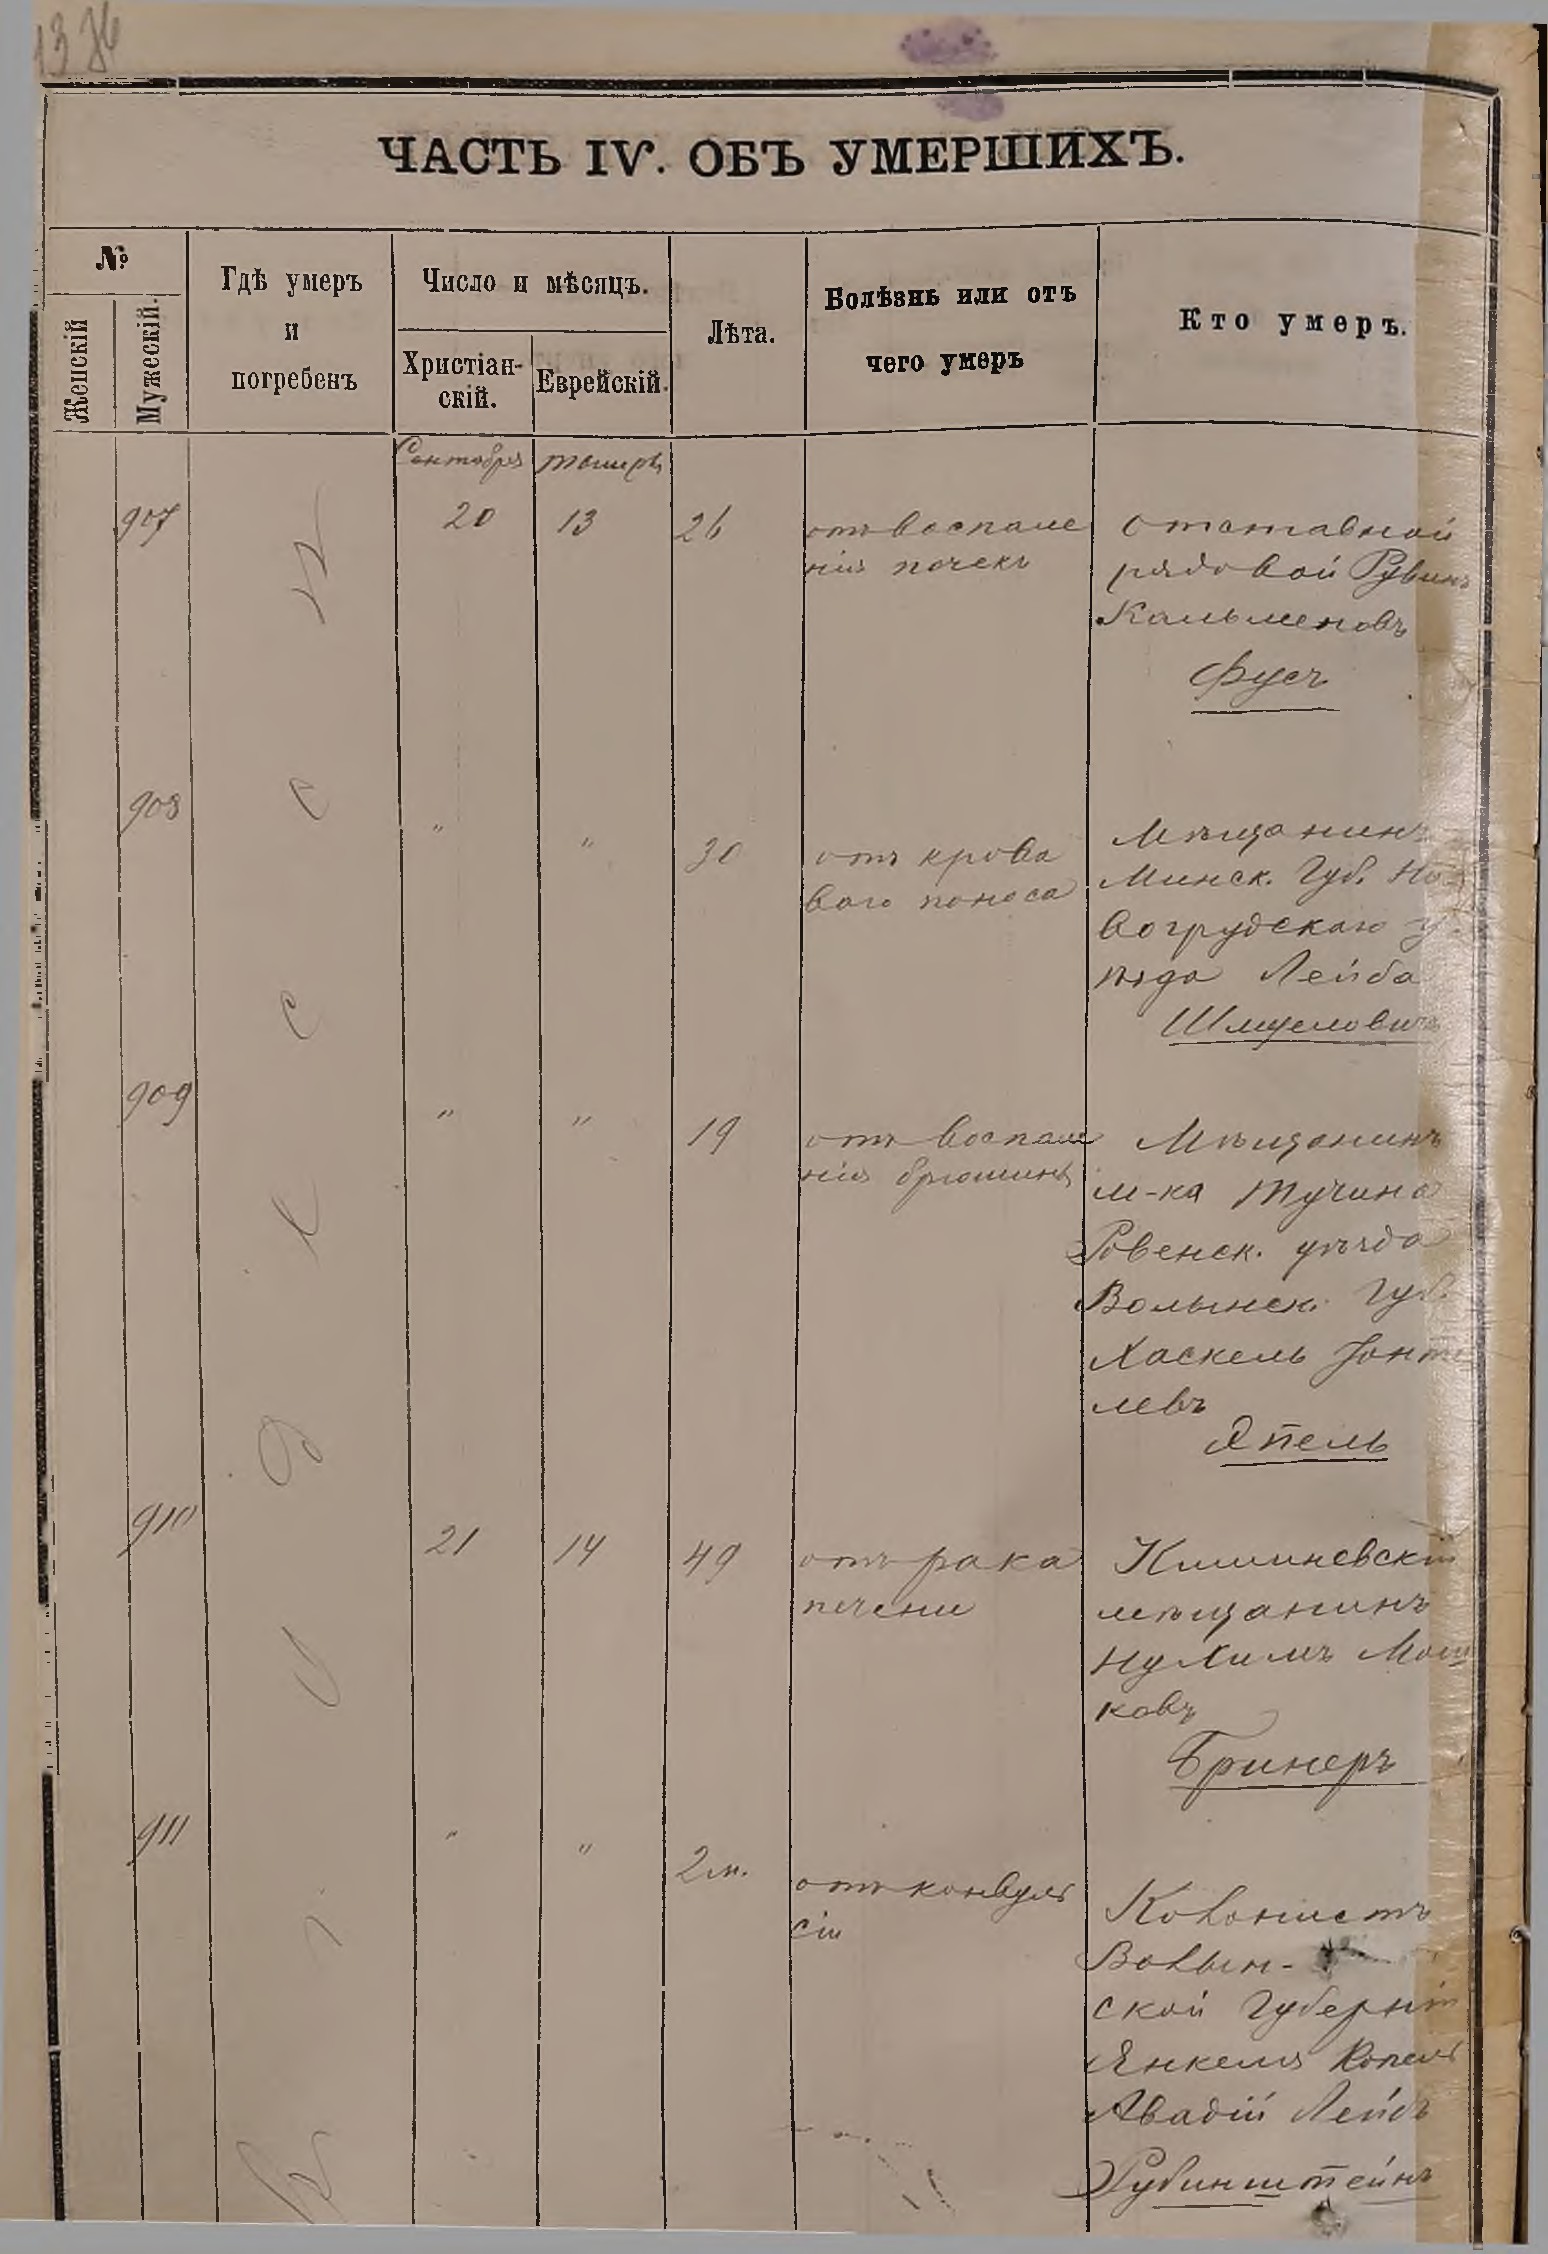 1376
ЧАСТЬ IV. ОБЪ УМЕРШИХЪ.
№
Женскій
Мужескій.
Гдѣ умеръ
и
погребенъ
Число и мѣсяцъ.
Христіан-
скій.
Еврейскій.
Лѣта.
Болѣзнь или отъ
чего умеръ
Кто умеръ.
Сентября
907
20
13
26
отъ воспале
нія почекъ
отставной
рядовой Рувинъ
Кальменовъ
Фусъ
908
"
"
30
отъ крова
ваго поноса
Мѣщанинъ
Минск. Губ. Но-
вогрудскаго у-
ѣзда Лейба
Шмуеловичъ
909
"
"
19
отъ воспале
нія брюшины
Мѣщанинъ
м-ка Тучина
Ровенск. уѣзда
Волынск. Губ.
Хаскель
левъ
Япель
910
21
14
49
отъ рака
печени
Кишиневскій
мѣщанинъ
Нухимъ Мош
ковъ
Бринеръ
911
"
"
2 м.
отъ конвуль
сіи
Колонистъ
Волын-
ской Губерніи
Янкеля Копель
Авадій Лейбъ
Рубинштейнъ
Одесса